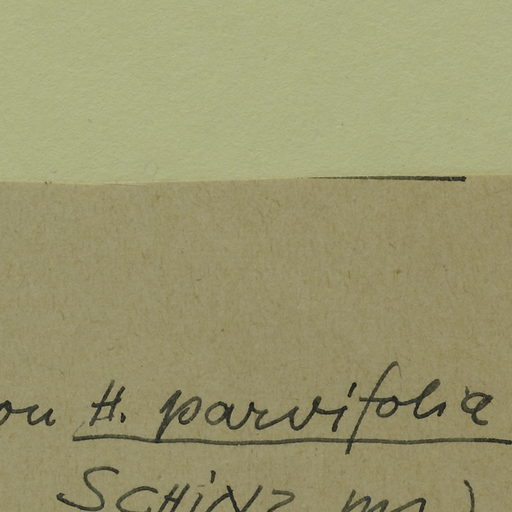 on H. parvifolia
SCHINZ